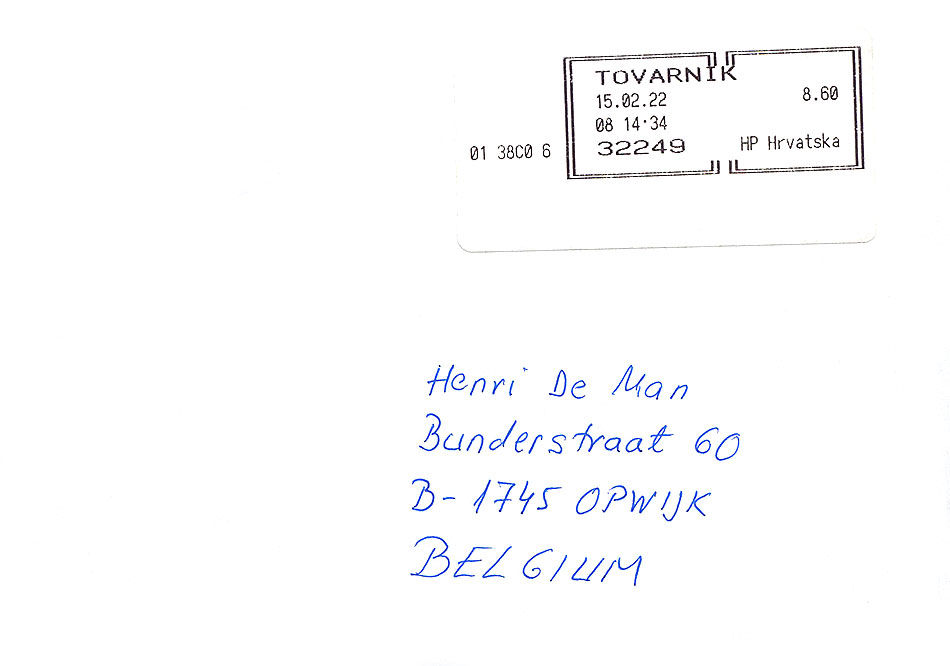 TOVARNIK
15.02.22 8.60
08 14·34
32249 HP Hrvatska
01 38C0 6
Henri De Man
Bunderstraat 60
B-1745 OPWIJK
BELGIUM